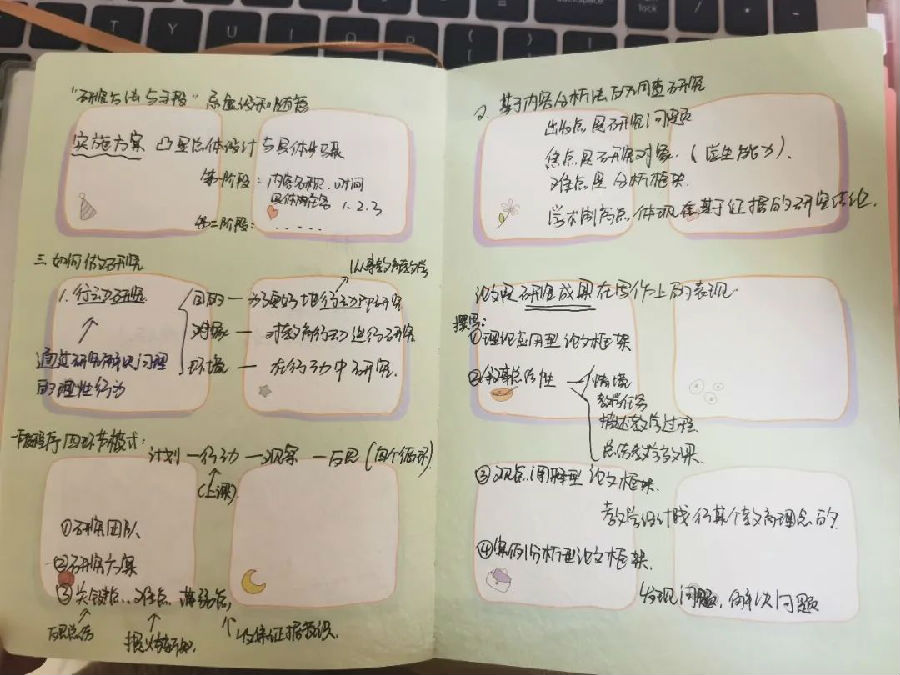 "研究方法与手段"
实施方案 凸显总体设计与具体步骤
第一阶段:内容名称、时间
具体内容 1.2.3
第二阶段: . . . . .
三. 如何做好研究
1. 行动研究
目的 — 为更好地行动而研究
对象 — 对教育行动进行研究
环境 — 在行动中研究.
通过研究解决问题
的理性行动
四环节模式:
计划 — 行动 — 观察 — 反思 (四个循环)
(上课)
①研究团队
②研究方案
③关键点、难点、薄弱点
反思总结
撰写
收集证据意识.
2. 基于内容分析法的调查研究
出发点是研究问题
焦点是研究对象.(学生能力).
难点是分析框架.
学术制高点体现在基于证据的研究结论.
论文是研究成果在写作上的表现.
撰写:
①理论应用型论文框架
②总结性
情境
教学任务
描述教学过程
总结教学效果.
③观点阐释型论文框架.
教学设计践行某个教育理念的?
④案例分析型论文框架.
发现问题,解决问题